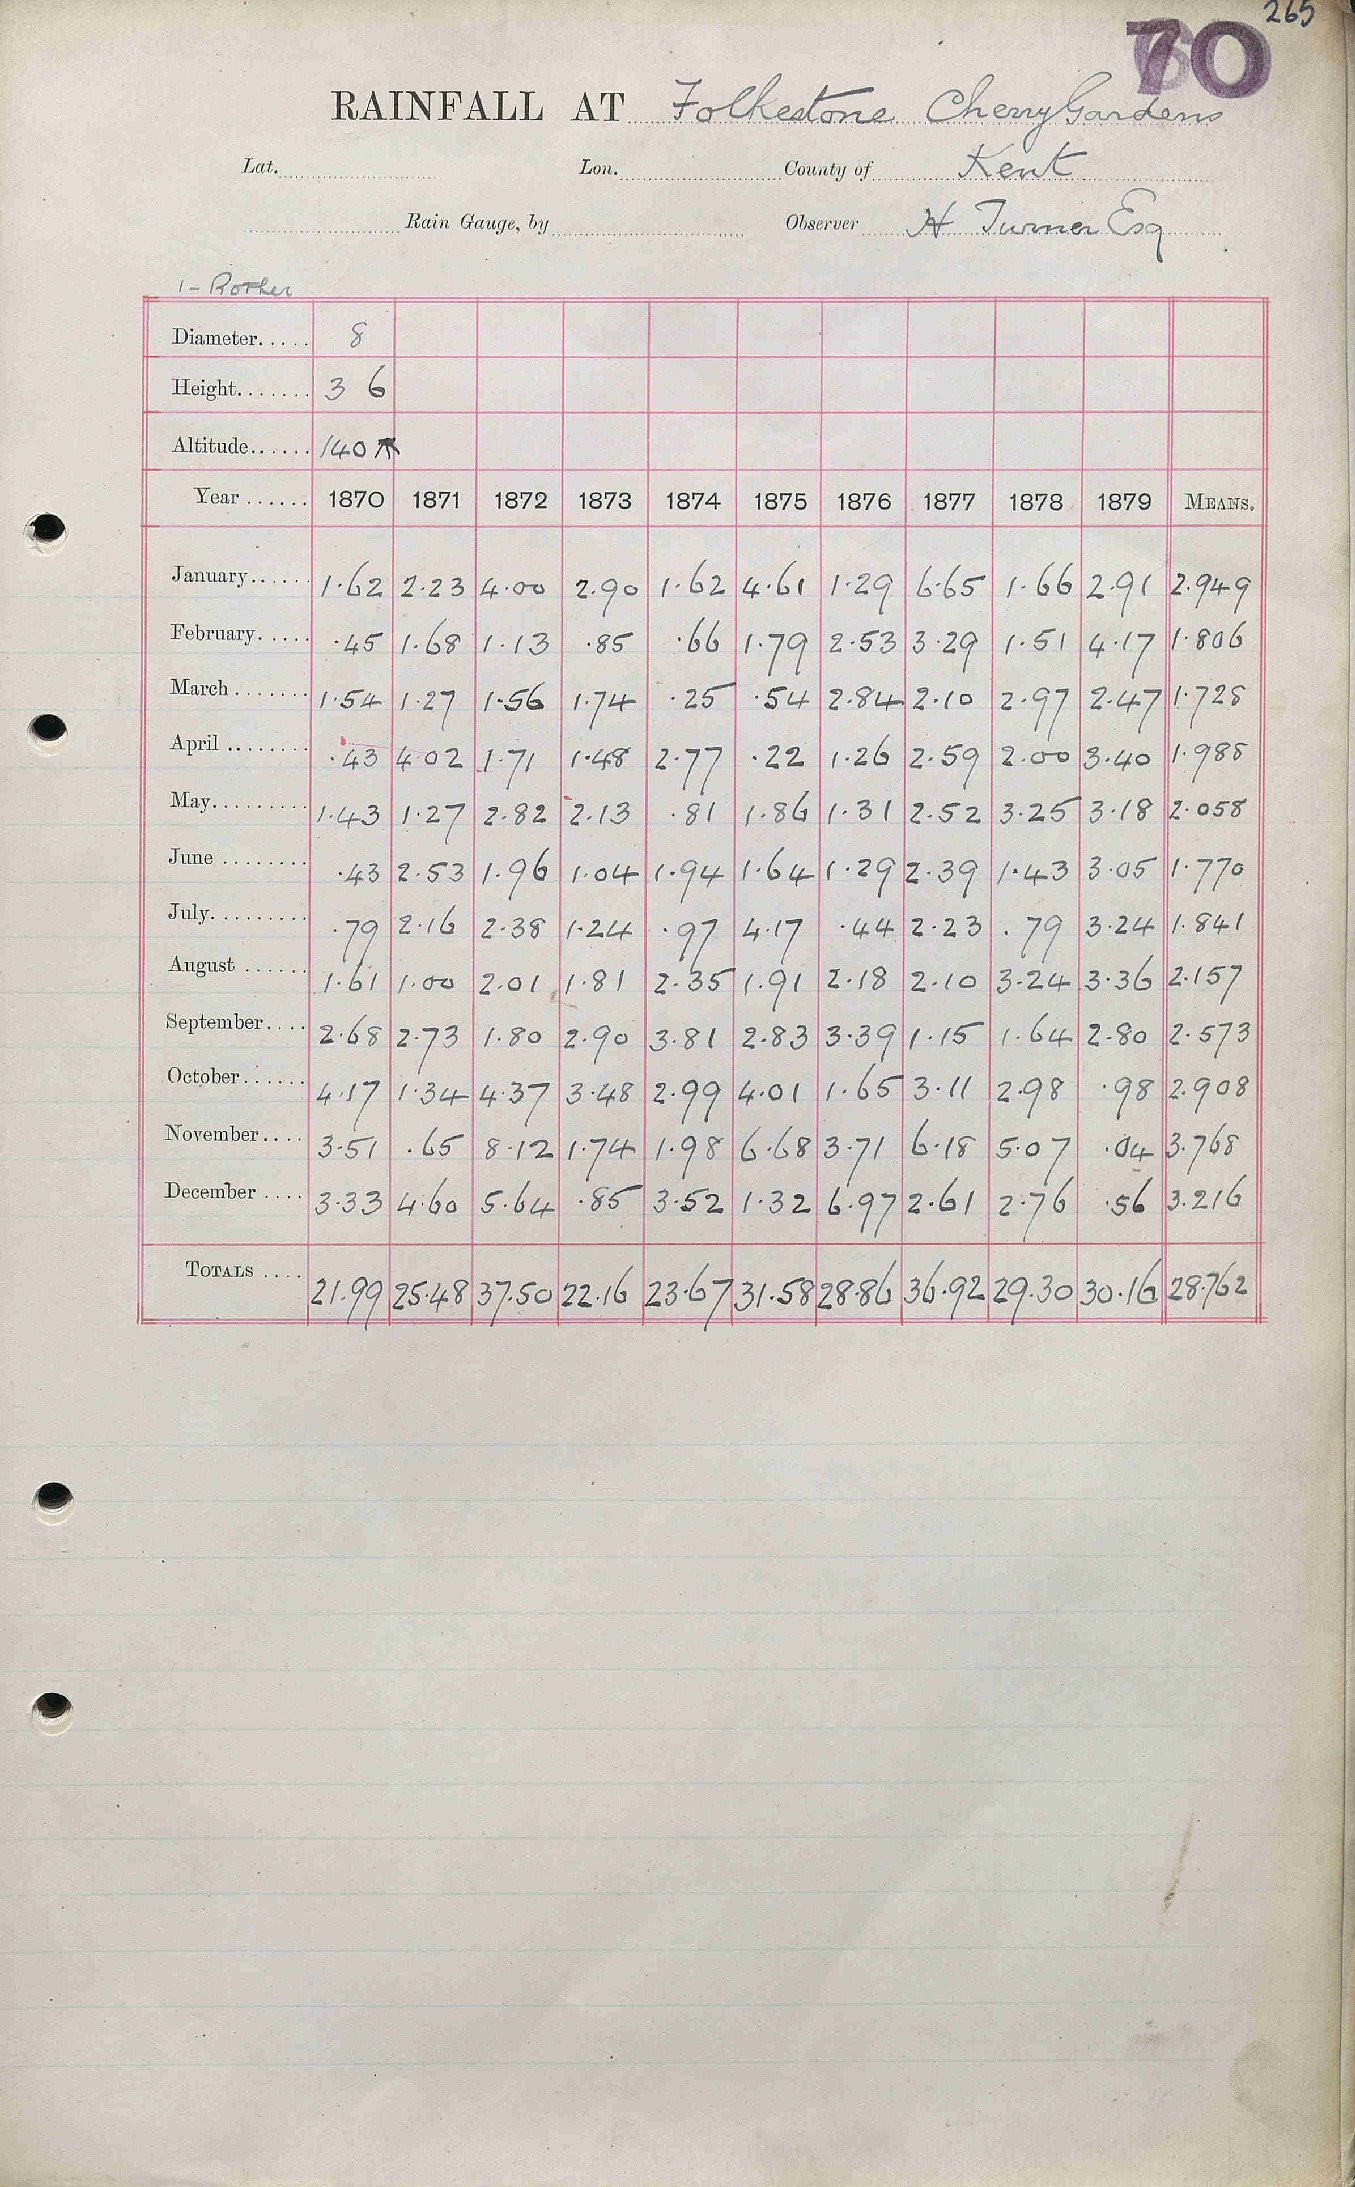 265
70
RAINFALL AT Folkestone Cherry Gardens
Lat. Lon. County of Kent
Rain Gauge, by Observer H Turner Esq
1 - Rother
Diameter..... 8
Height....... 3 6
Altitude...... 140
Year ...... 1870 1871 1872 1873 1874 1875 1876 1877 1878 1879 MEANS.
January...... 1.62 2.23 4.00 2.90 1.62 4.61 1.29 6.65 1.66 2.91 2.949
February..... .45 1.68 1.13 .85 .66 1.79 2.53 3.29 1.51 4.17 1.806
March ....... 1.54 1.27 1.56 1.74 .25 .54 2.84 2.10 2.97 2.47 1.728
April ........ .43 4.02 1.71 1.48 2.77 .22 1.26 2.59 2.00 3.40 1.988
May......... 1.43 1.27 2.82 2.13 .81 1.86 1.31 2.52 3.25 3.18 2.058
June ........ .43 2.53 1.96 1.04 1.94 1.64 1.29 2.39 1.43 3.05 1.770
July......... .79 2.16 2.38 1.24 .97 4.17 .44 2.23 .79 3.24 1.841
August ...... 1.61 1.00 2.01 1.81 2.35 1.91 2.18 2.10 3.24 3.36 2.157
September.... 2.68 2.73 1.80 2.90 3.81 2.83 3.39 1.15 1.64 2.80 2.573
October...... 4.17 1.34 4.37 3.48 2.99 4.01 1.65 3.11 2.98 .98 2.908
November.... 3.51 .65 8.12 1.74 1.98 6.68 3.71 6.18 5.07 .04 3.768
December .... 3.33 4.60 5.64 .85 3.52 1.32 6.97 2.61 2.76 .56 3.216
TOTALS .... 21.99 25.48 37.50 22.16 23.67 31.58 28.86 36.92 29.30 30.16 28.762